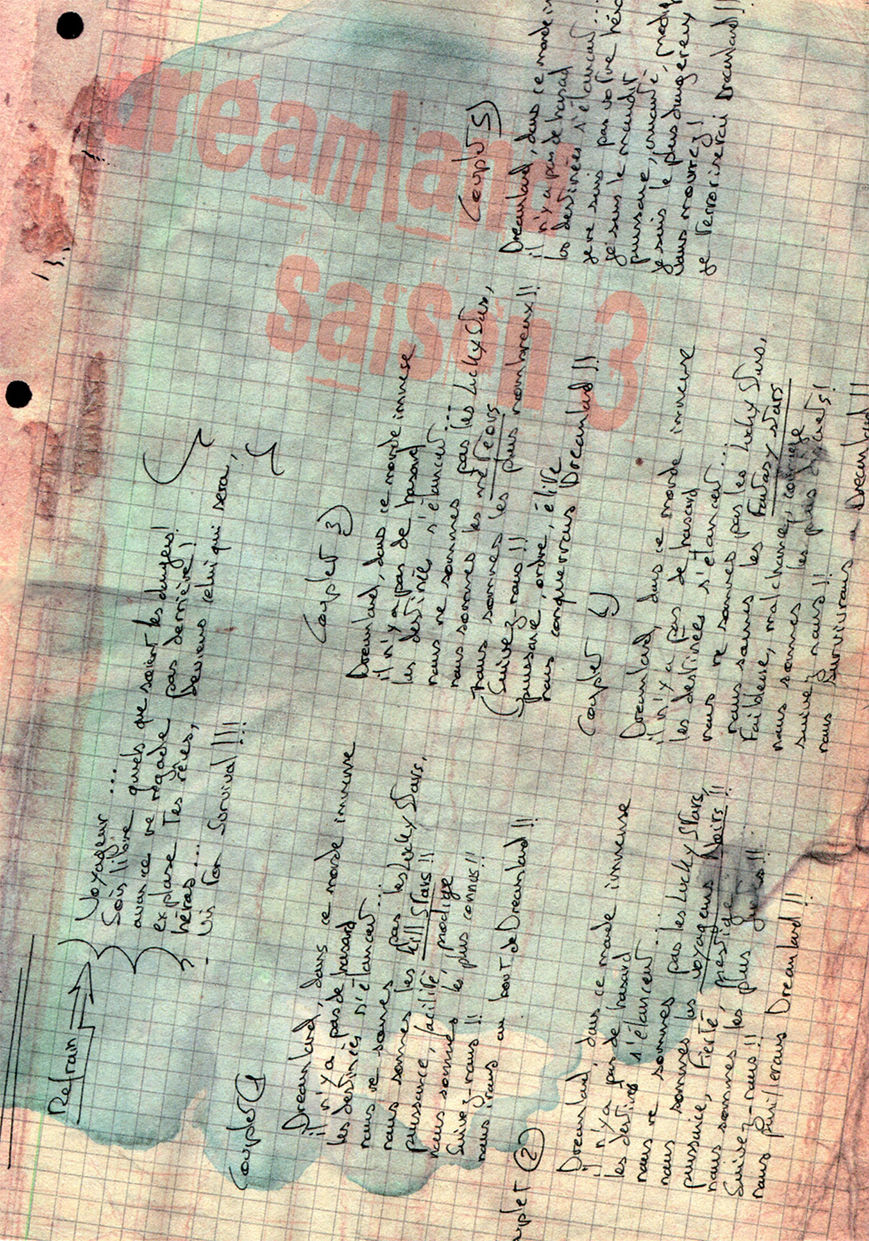 dreamland
saison 3
Refrain
Voyageur ...
Sois libre quels que soient les dangers!
avance ne regarde pas derrière!
explose tes rêves, Deviens celui qui sera,
héros ...
- Vis Ton Survival !!!
Couplet 1
Dreamland, dans ce monde immense
il n'y a pas de hasard
les destinées s'élancent ...
nous ne sommes pas les Lucky Stars,
nous sommes les Kill Stars !!
puissance, facilité, prodige
nous sommes les plus connus !!
Suivez-nous !!
nous irons au bout de Dreamland !!
Couplet 2
Dreamland, dans ce monde immense
il n'y a pas de hasard
les destinées s'élancent ...
nous ne sommes pas les Lucky Stars,
nous sommes les voyageurs Noirs !!
puissance, fierté, prestige
nous sommes les plus !!
Suivez-nous !!
nous Dreamland !!
Couplet 3
Dreamland, dans ce monde immense
il n'y a pas de hasard
les destinées s'élancent ...
nous ne sommes pas les Lucky Stars,
nous sommes les
nous sommes les plus nombreux !!
(Suivez-nous !!
puissance, ordre, élite
nous conquerrons Dreamland !!
Couplet 4
Dreamland, dans ce monde immense
il n'y a pas de hasard
les destinées s'élancent ...
nous ne sommes pas les Lucky Stars,
nous sommes les Fantasy Stars
Faiblesse, malchance, courage
nous sommes les plus discrets!
suivez nous !!
nous survivrons a Dreamland !!
Couplet 5
Dreamland, dans ce monde
il n'y a pas de hasard
les destinées s'élancent ...
je ne suis pas votre héros
je suis le maudit
puissance, cruauté,
je suis le plus dangereux
vous mourrez!
je terroriserai Dreamland !!